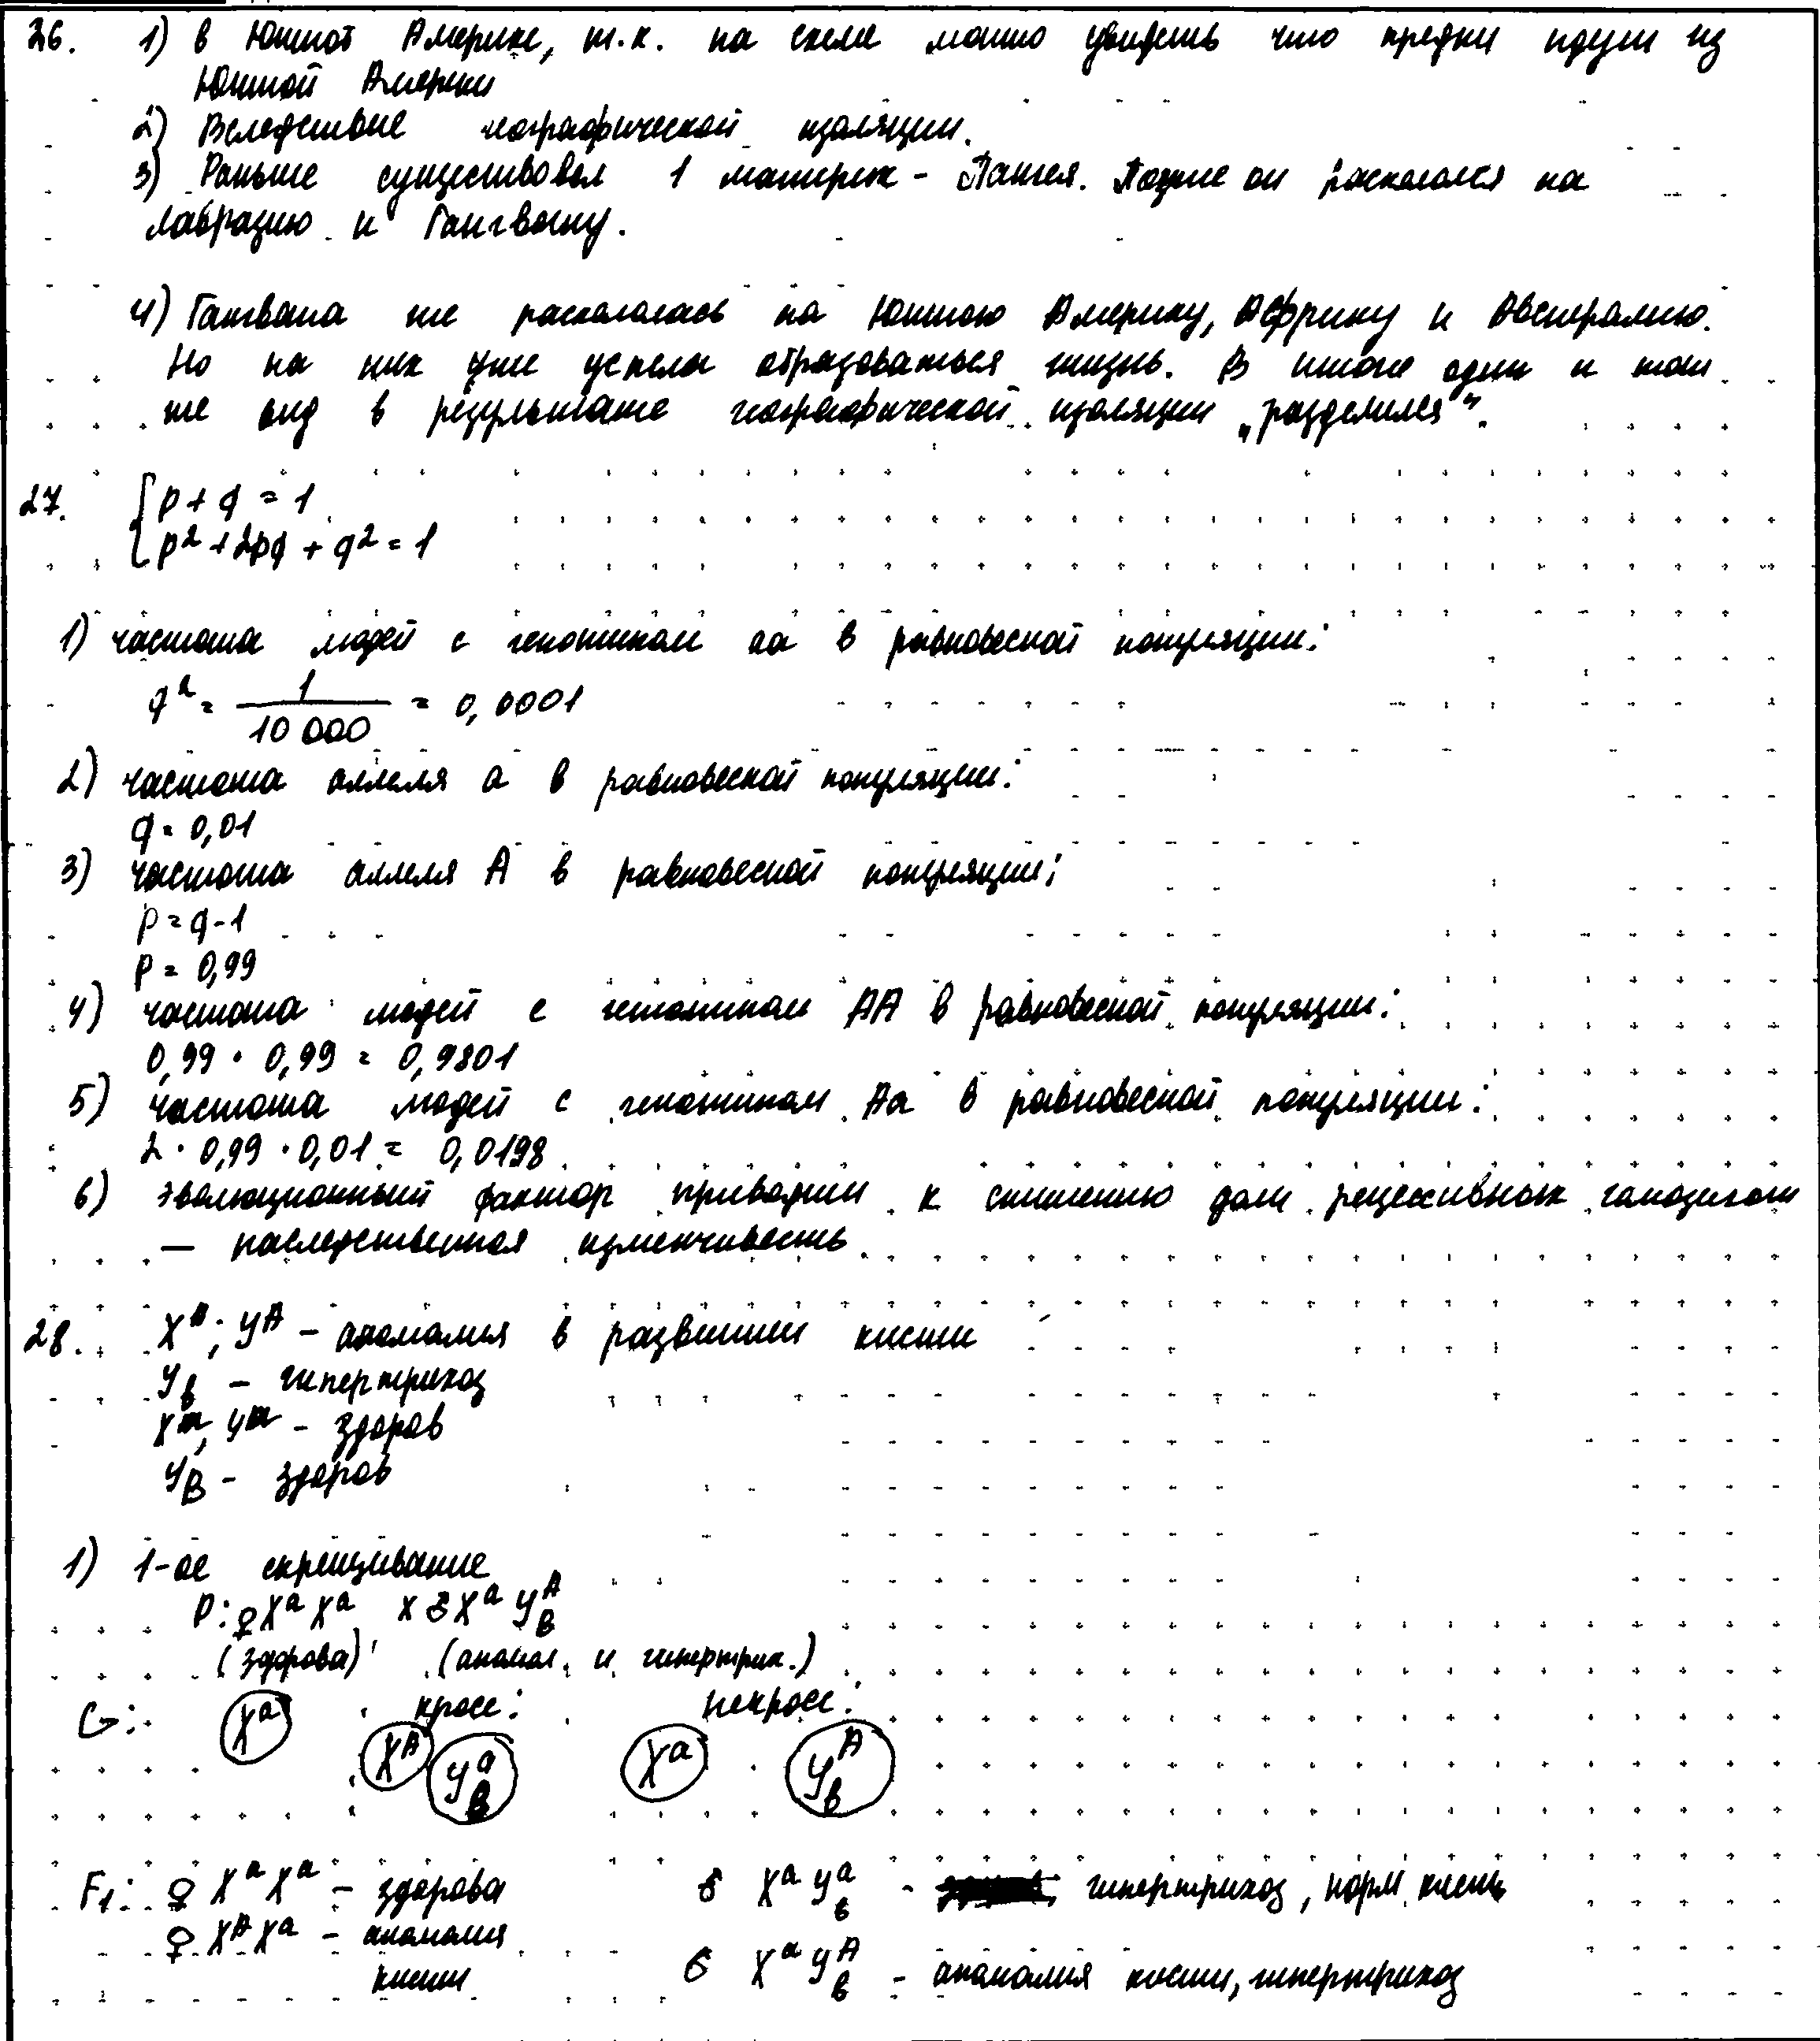 26. 1) в Южной Америке, т.к. на схеме можно увидеть что предки идут из
Южной Америки
2) Вследствие географической изоляции.
3) Раньше существовал 1 материк - Пангея. Позже он раскололся на
Лавразию и Гангвану.
4) Гангвана же раскололась на Южною Америку, Африку и Австралию.
Но на них уже успела образоваться жизнь. В итоге один и тот
же вид в результате географической изоляции „разделился".
27. { p + q = 1
p² + 2pq + q² = 1
1) частота людей с генотипом аа в равновесной популяции:
q² = 1/10 000 = 0,0001
2) частота аллеля а в равновесной популяции:
q = 0,01
3) частота аллеля А в равновесной популяции:
p = q - 1
p = 0,99
4) частота людей с генотипом АА в равновесной популяции:
0,99 · 0,99 = 0,9801
5) частота людей с генотипом Аа в равновесной популяции:
2 · 0,99 · 0,01 = 0,0198
6) эволюционный фактор приводящий к снижению доли рецессивных гомозигот
— наследственная изменчивость
28. Xᴬ; Yᴬ - аномалия в развитии кисти
Y_b - гипертрихоз
Xᵃ, Yᵃ - здоров
Y_B - здоров
1) 1-ое скрещивание
P: ♀ XᵃXᵃ x ♂ XᵃYᴬ_b
(здорова) (аномал. и гипертрих.)
G: Xᵃ кросс: некросс:
Xᴬ Yᵃ_b Xᵃ Yᴬ_b
F₁: ♀ XᵃXᵃ - здорова ♂ XᵃYᵃ_b - гипертрихоз, норм. кисть
♀ XᴬXᵃ - аномалия
кисти ♂ XᵃYᴬ_b - аномалия кисти, гипертрихоз